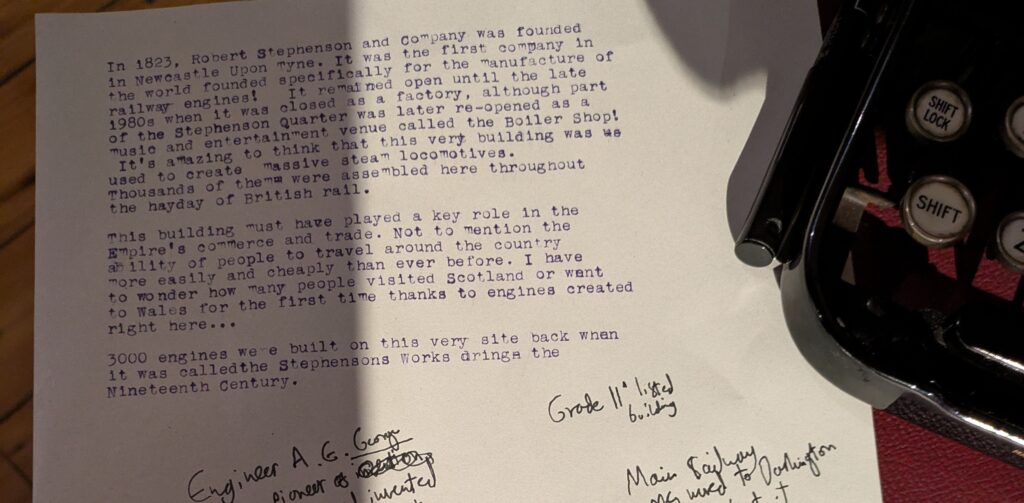 In 1823, Robert Stephenson and Company was founded
in Newcastle Upon Tyne. It was the first company in
the world founded specifically for the manufacture of
railway engines! It remained open until the late
1980s when it was closed as a factory, although part
of the Stephenson Quarter was later re-opened as a
music and entertainment venue called the Boiler Shop!
It's amazing to think that this very building was us
used to create massive steam locomotives.
Thousands of themm were assembled here throughout
the hayday of British rail.
This building must have played a key role in the
Empire's commerce and trade. Not to mention the
ability of people to travel around the country
more easily and cheaply than ever before. I have
to wonder how many people visited Scotland or went
to Wales for the first time thanks to engines created
right here...
3000 engines were built on this very site back when
it was calledthe Stephensons Works dringm the
Nineteenth Century.
Grade II* listed
building
Engineer A. G. George
Pioneer
invented
Main Railway
used to Darlington
it
SHIFT
LOCK
SHIFT